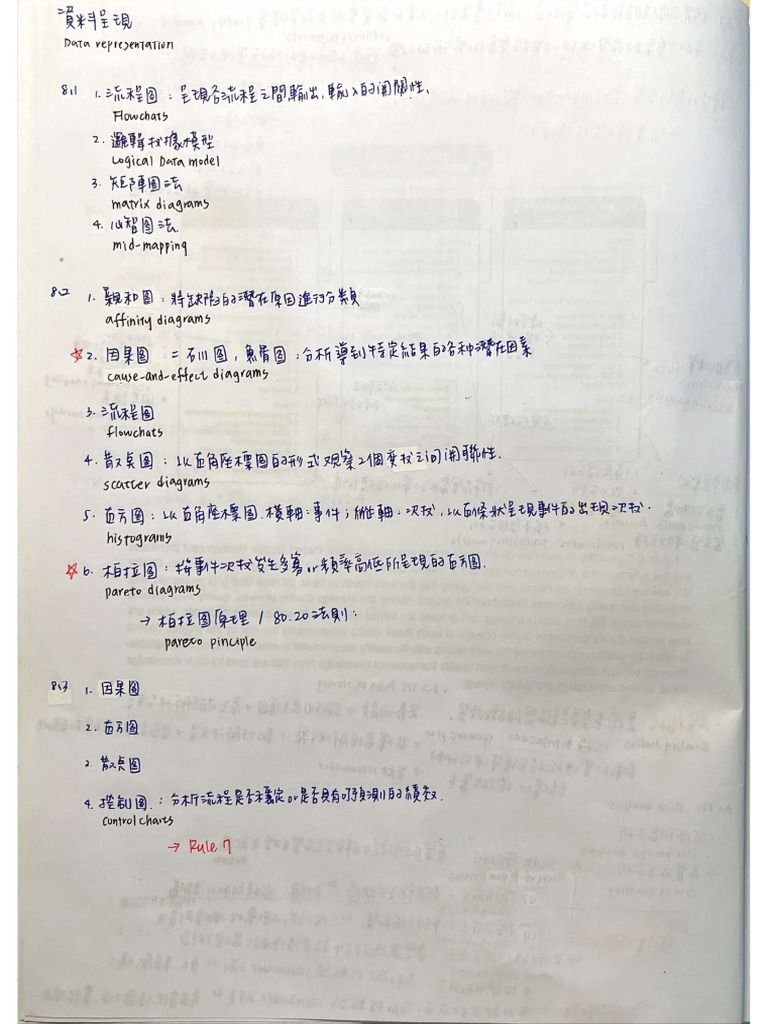 資料呈現
Data representation
8.1 1. 流程圖：呈現各流程之間輸出、輸入的関關性。
Flowchats
2. 邏輯找據模型
Logical Data model
3. 矩陣圖法
matrix diagrams
4. 心智圖法.
mid-mapping
8.2 1. 親和圖：將缺陷的潛在原因進行分類
affinity diagrams
☆2. 因果圖 = 石川圖，魚骨圖：分析導到特定結果的各種潛在因素
cause-and-effect diagrams
3. 流程圖
flowchats
4. 散点圖：以直角座標圖的形式観察2個変数之间関聯性.
scatter diagrams
5. 直方圖：以直角座標圖.橫軸：事件；縱軸：次数，以直條狀呈現事件的出現次数.
histograms
☆6. 柏拉圖：按事件次数发生多寡or頻率高低所呈現的直方圖.
pareto diagrams
→ 柏拉圖原理 / 80.20法則：
pareco pinciple
8.3 1. 因果圖
2. 直方圖
2. 散点圖
4. 控制圖.：分析流程是否穩定or是否具有可預測的績效.
control charts
→ Rule 7